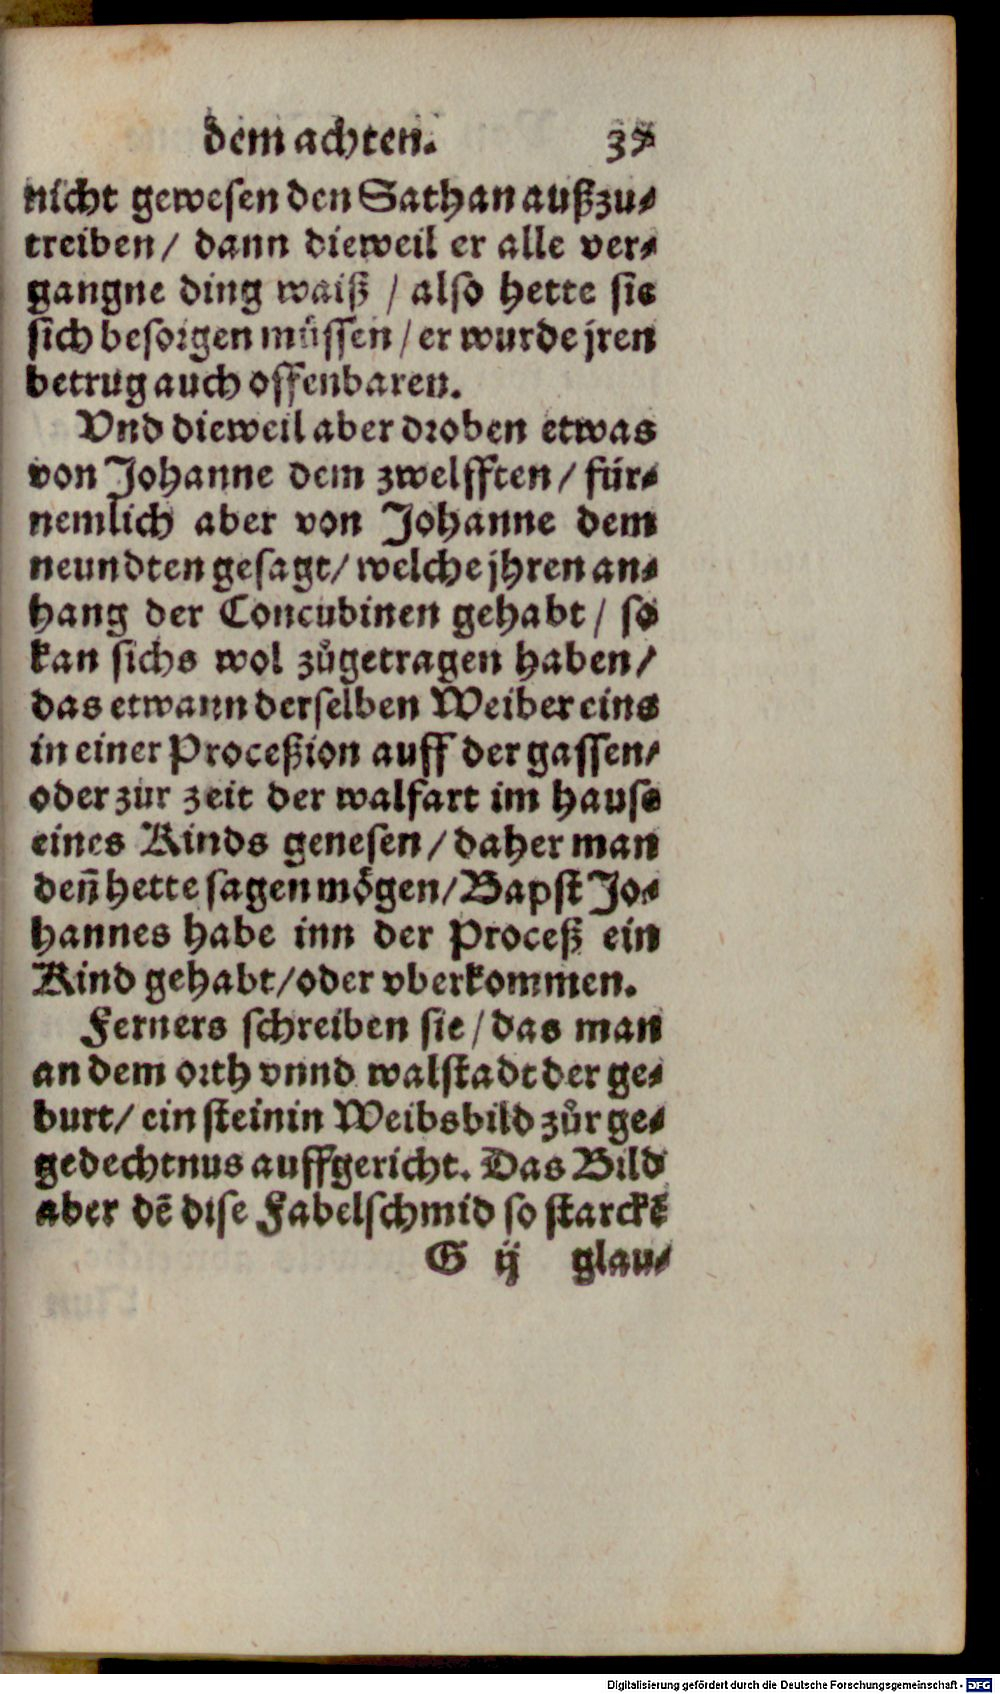 dem achten.
nicht gewesen den Sathan außzu⸗
treiben/ dann dieweil er alle ver⸗
gangne ding waiß / also hette sie
sich besorgen müssen / er wurde jren
betrug auch offenbaren.
Vnd dieweil aber droben etwas
von Johanne dem zwelfften / für⸗
nemlich aber von Johanne dem
neundten gesagt/ welche jhren an⸗
hang der Concubinen gehabt / so
kan sichs wol zůgetragen haben/
das etwann derselben Weiber eins
in einer Proceßion auff der gassen/
oder zur zeit der walfart im hause
eines Kinds genesen / daher man
deñ hette sagen mögen/ Bapst Jo⸗
hannes habe inn der Proceß ein
Kind gehabt/ oder vberkommen.
Ferners schreiben sie / das man
an dem orth vnnd walstadt der ge⸗
burt/ ein steinin Weibsbild zůr ge⸗
gedechtnus auffgericht. Das Bild
aber dẽ dise Fabelschmid so starckẽ
G ij glau⸗
Digitalisierung gefördert durch die Deutsche Forschungsgemeinschaft - DFG